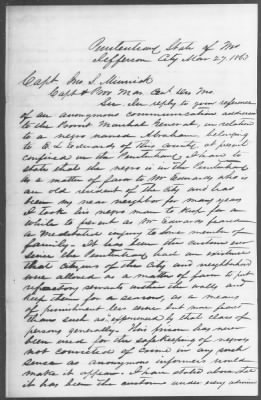 Penitentiary State of Mo
Jefferson City Nov 27 1863
Capt Jno S. Minnick
Capt & Pro Mar Cen Dis Mo
Sir In reply to your reference
of an anonymous communication addressed
to the Provost Marshal General, in relation
to a negro named Abraham, belonging
to E L Edwards of this county, at present
confined in the Penitentiary, I have to
state that the negro is in the Penitentiary
by a matter of favor to Mr Edwards who is
an old resident of the city and has
been my near neighbor for many years
I took his negro man to keep for a
while to prevent as Mr Edwards feared
a meditated injury to some member of
family. It has been the custom ever
since the Penitentiary had an existence
that citizens of this City and neighborhood
were allowed as a matter of favor to put
refractory servants within the walls and
keep them for a season, as a means
of punishment less severe but more
than such as experienced by that class of
persons generally. This prison has never
been used for the safe keeping of negroes
not convicted of crime in any such
sense as anonymous informers would
make it appear. I have stated above that
it has been the custom under every